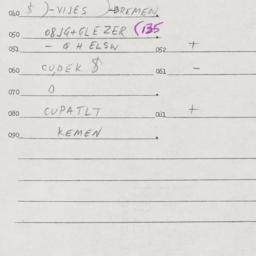 040 $ )-VIJES )-BREMEN
050 OBJG+GLEZER (135
051 - G H ELSN 052 +
060 CUDEK $ 061 -
070 O
080 CUPATLT 061 +
090 KEMEN